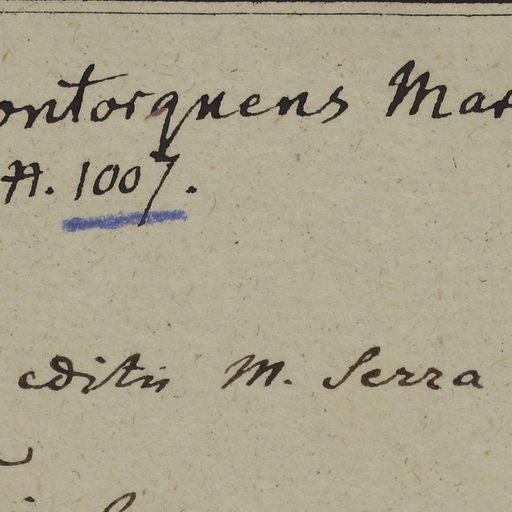 ontorquens Mar
A. 1007.
editis M. Serra